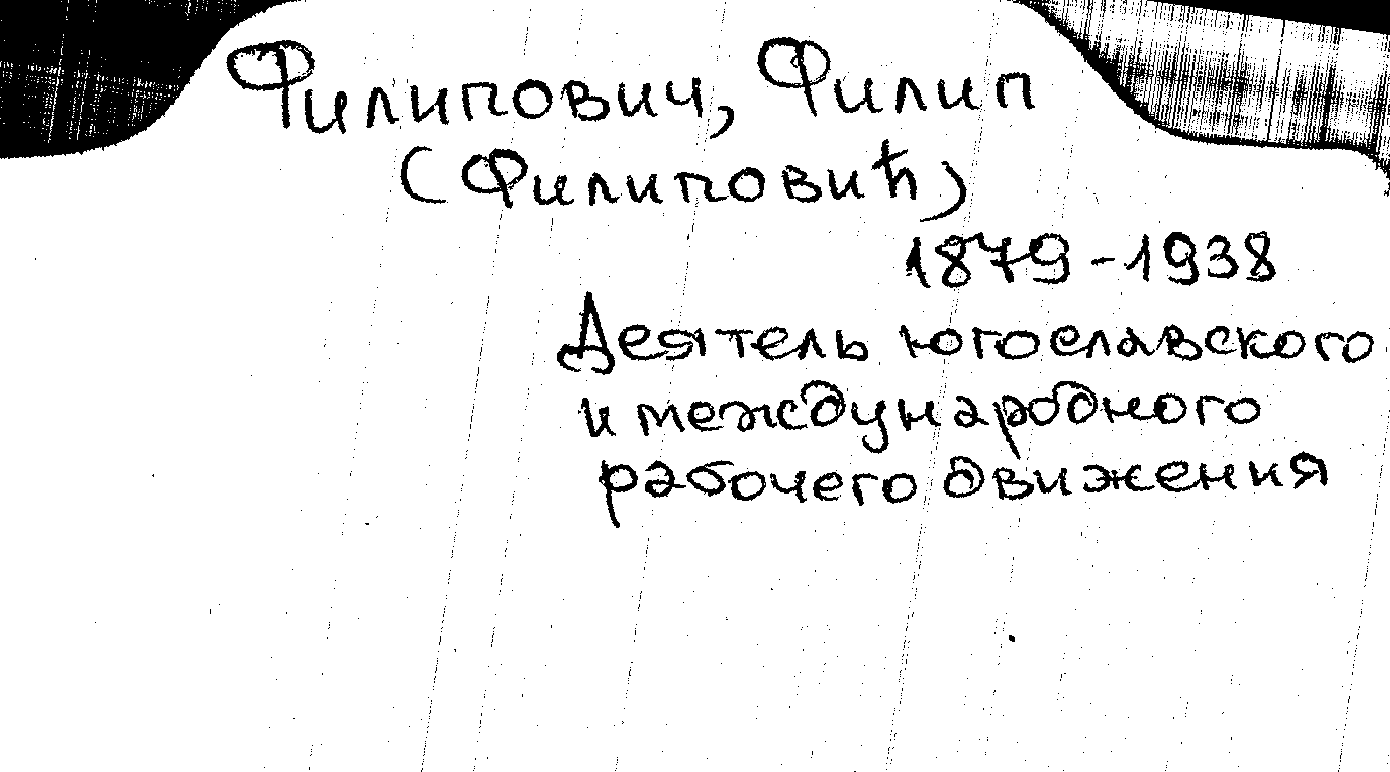 Филипович, Филип
(Филиповић)
1879-1938
Деятель югославского
и международного
рабочего движения